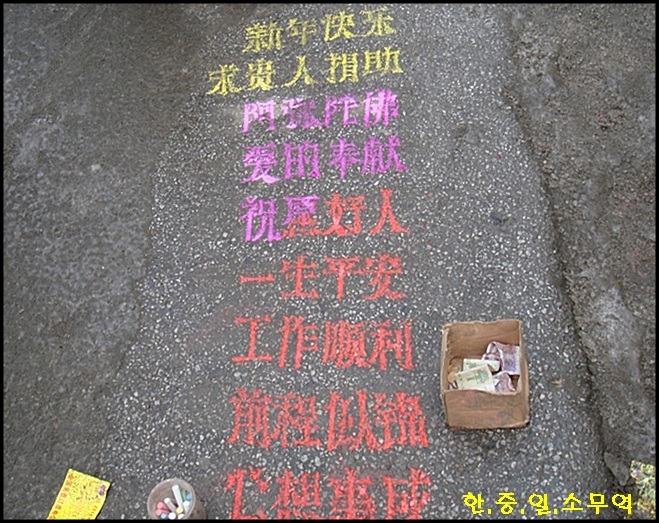 新年快乐
求贵人捐助
阿弥陀佛
爱的奉献
祝愿好人
一生平安
工作顺利
前程似锦
心想事成
한.중.일.소무역